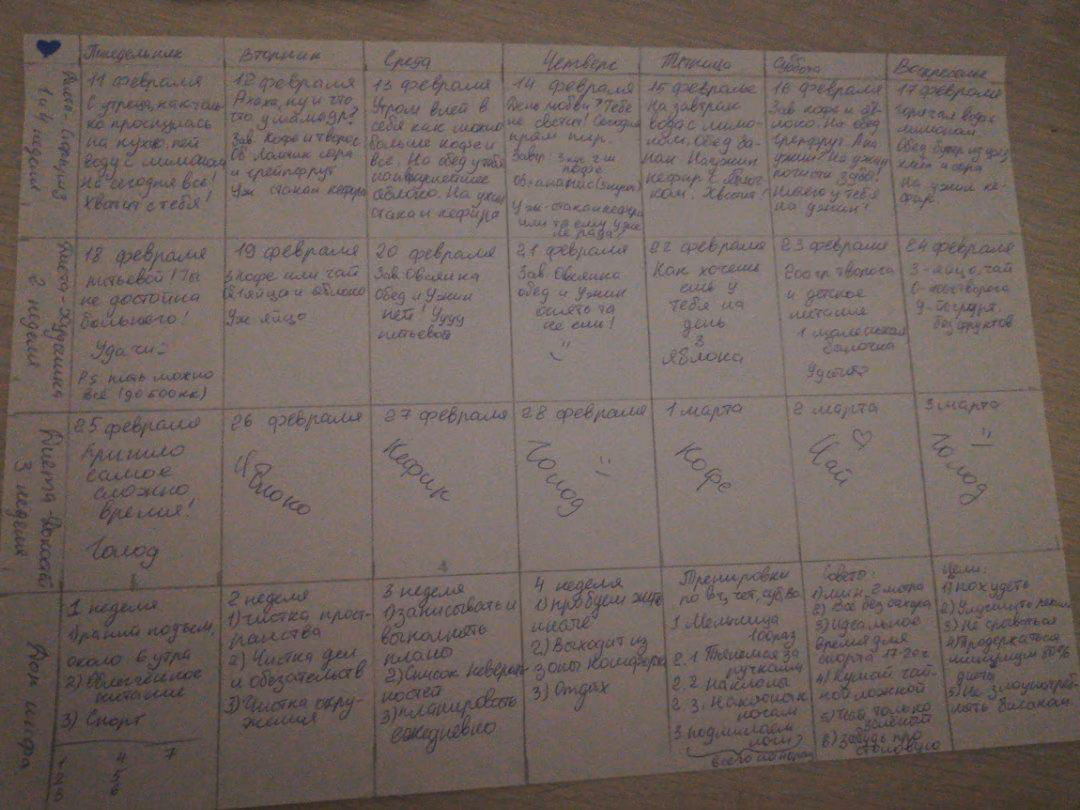 Понедельник
Вторник
Среда
Четверг
Пятница
Суббота
Воскресенье
1-ая неделя
11 февраля
С утреца, как только
проснулась
на кухню, пей
воду с лимоном
На сегодня всё!
Хватит с тебя!
12 февраля
Ахаха, ну и что,
Зав. Кофе и творог
Об. Ломтик сыра
и грейпфрут
Уж стакан кефира
13 февраля
Утром влей в
себя как можно
больше кофе и
всё. На обед у тебя
яблоко. На ужин
стакан кефира
14 февраля
День любви? Тебе
не светит! Сегодня
прям пир.
Завтр.
кофе
Об-ананас
Уж-стакан кефира
или ты ему уже
не рада?
15 февраля
На завтрак
вода с лимо-
ном. Обед ба-
нан. На ужин
кефир с яблоч-
ком. Хватит!
16 февраля
Зав кофе и яб-
локо. На обед
грейпфрут. А на
ужин? На ужин
Ничего у тебя
на ужин!
17 февраля
горячая вода с
лимоном
Обед бутер из
хлеб и сыра
На ужин ке-
фир
2 неделя
18 февраля
питьевой! Ты
не достойна
большего!
Удачи
P.s пить можно
всё
19 февраля
З кофе или чай
О 1 яйцо и яблоко
Уж яйцо
20 февраля
Зав. Овсянка
Обед и Ужин
нет! Уууу
питьевой
21 февраля
Зав. Овсянка
обед и Ужин
опять ты
не ела!
22 февраля
Как хочешь
ешь у
тебя на
день
3
яблока
23 февраля
200 гр творога
и
питание
1 маленькая
булочка
24 февраля
З-яйцо, чай
О-100г творога
У-
без фруктов
3 неделя
25 февраля
Пришло
самое
сложно
время!
Голод
26 февраля
Яблоко
27 февраля
Кефир
28 февраля
Голод
1 марта
Кофе
2 марта
Чай
3 марта
Голод
1 неделя
1) ранний подъем,
около 6 утра
2)
питание
3) Спорт
2 неделя
1) Чистка прост-
ранства
2) Чистка дел
и обязательств
3) Чистка окру-
жения
3 неделя
1) Записывать и
выполнять
план
2) Список
3) планировать
ежедневно
4 неделя
1) Пробуем жить
иначе
2) Выходит из
зоны комфорта
3) Отдых
Тренировки
по вт, чет, суб, вос
1 Мельница
10 раз
2.1 Тянемся за
ручками
2.2. Наклоны
2.3. Наклоны к
ногам
3. поднимаем
ноги
Советы:
1) мин. 2 литра
2) Всё без сахара
3) идеальное
время для
спорта 17-20ч
4) Кушай чай-
ной ложкой
5) Чай только
зеленый
6) Забудь про
столовую
Цели:
1) похудеть
2) Улучшить режим
3) Не сорваться
4) Продержаться
минимум 80%
диеты